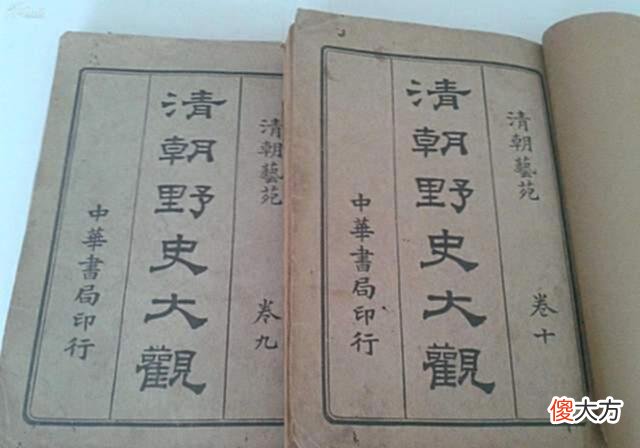 清朝藝苑
卷九
清朝野史大觀
中華書局印行
清朝藝苑
卷十
清朝野史大觀
中華書局印行
傻大方